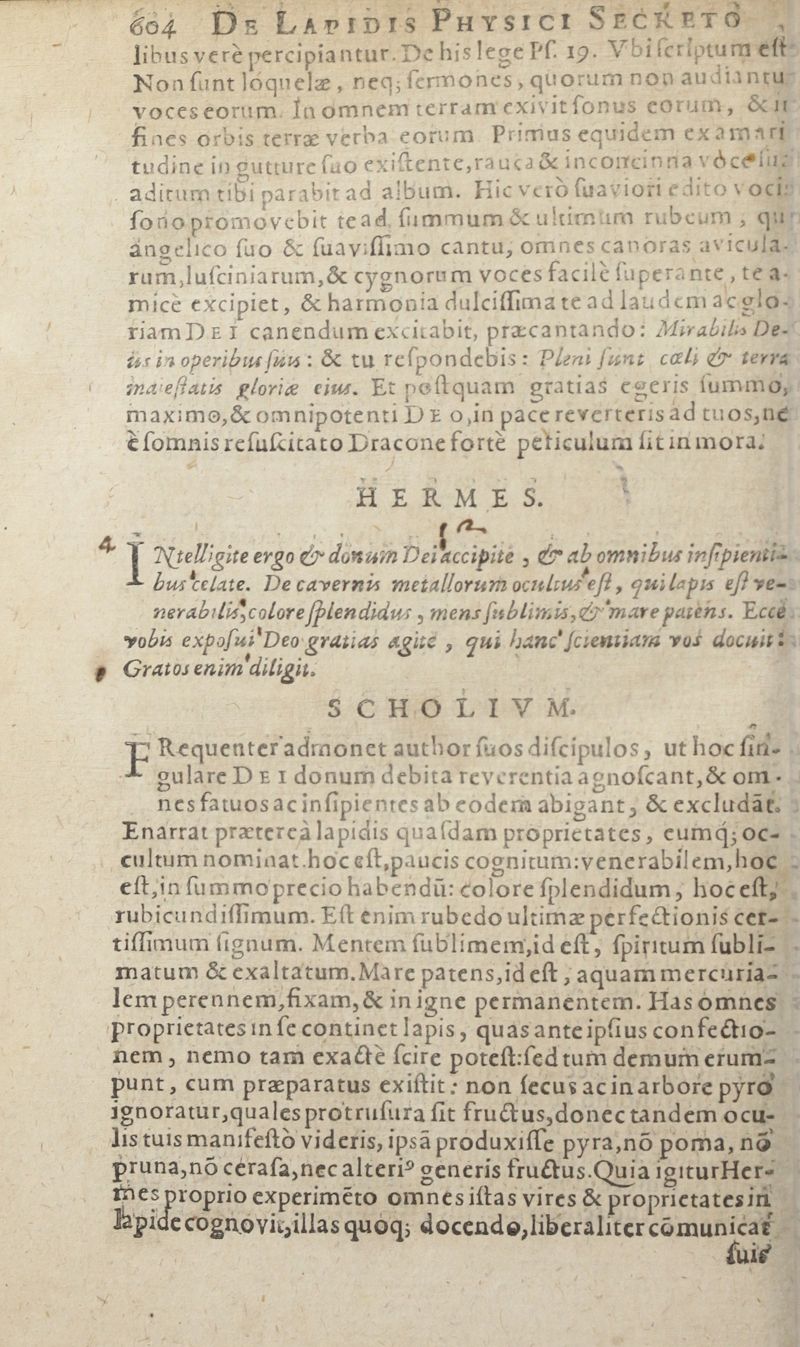 604 DE LAPIDIS PHYSICI SECRETO
libus verè percipiantur. De his lege Ps. 19. Vbi scriptum est
Non sunt loquelæ, neq; sermones, quorum non audiantu
voces eorum. In omnem terram exivit sonus eorum, & in
fines orbis terræ verba eorum. Primus equidem ex amari
tudine in gutture suo existente, rauca & inconcinna vòce
aditum tibi parabit ad album. Hic verò suaviori edito voci
sono promovebit te ad summum & ultimum rubeum, qu
angelico suo & suavissimo cantu, omnes canoras avicula-
rum, lusciniarum, & cygnorum voces facilè superante, te a-
micè excipiet, & harmonia dulcissima te ad laudem ac glo-
riam DEI canendum excitabit, præcantando: Mirabilis De-
us in operibus suis: & tu respondebis: Pleni sunt cœli & terra
maiestatis gloriæ eius. Et postquam gratias egeris summo,
maximo, & omnipotenti DEO, in pace reverteris ad tuos, ne
è somnis resuscitato Dracone fortè periculum sit in mora.
HERMES.
4. INtelligite ergo & donum Dei accipite, & ab omnibus insipienti-
bus celate. De cavernis metallorum ocultus est, qui lapis est ve-
nerabilis, colore splendidus, mens sublimis, & mare patens. Ecce
vobis exposui Deo gratias agite, qui hanc scientiam vos docuit:
Gratos enim diligit.
SCHOLIVM.
FRequenter admonet author suos discipulos, ut hoc sin-
gulare DEI donum debita reverentia agnoscant, & om-
nes fatuos ac insipientes ab eodem abigant, & excludāt.
Enarrat prætereà lapidis quasdam proprietates, eumq́; oc-
cultum nominat. hoc est, paucis cognitum: venerabilem, hoc
est, in summo precio habendū: colore splendidum, hoc est,
rubicundissimum. Est enim rubedo ultimæ perfectionis cer-
tissimum signum. Mentem sublimem, id est, spiritum subli-
matum & exaltatum. Mare patens, id est, aquam mercuria-
lem perennem, fixam, & in igne permanentem. Has omnes
proprietates in se continet lapis, quas ante ipsius confectio-
nem, nemo tam exactè scire potest: sed tum demum erum-
punt, cum præparatus existit: non secus ac in arbore pyro
ignoratur, quales protrusura sit fructus, donec tandem ocu-
lis tuis manifestò videris, ipsā produxisse pyra, nō poma, nō
pruna, nō cerasa, nec alteriꝰ generis fructus. Quia igitur Her-
mes proprio experimēto omnes istas vires & proprietates in
lapide cognovit, illas quoq; docendo, liberaliter cōmunicat
suis